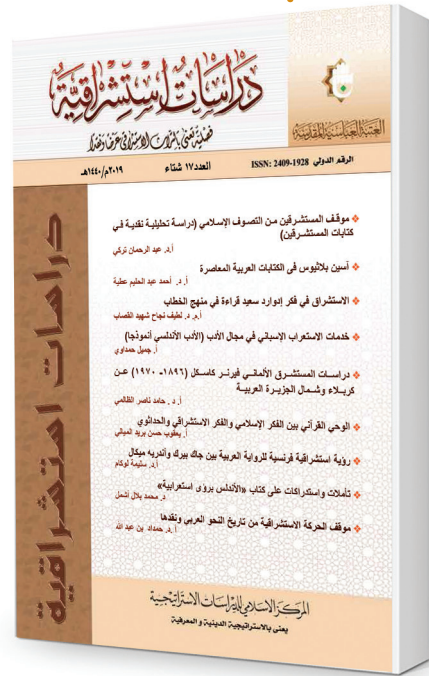 دراسات استشراقية
فصلية تعنى بالتراث الاستشراقي عرضا ونقدا
العتبة العباسية المقدسة
الرقم الدولي ISSN: 2409-1928
العدد ١٧ شتاء
٢٠١٩م/١٤٤٠هـ
موقف المستشرقين من التصوف الإسلامي (دراسة تحليلية نقدية في
كتابات المستشرقين)
أ.د. عبد الرحمان تركي
آسين بلاثيوس في الكتابات العربية المعاصرة
أ. د. أحمد عبد الحليم عطية
الاستشراق في فكر إدوارد سعيد قراءة في منهج الخطاب
أ.م. د. لطيف نجاح شهيد القصاب
خدمات الاستعراب الإسباني في مجال الأدب (الأدب الأندلسي أنموذجا)
أ. جميل حمداوي
دراسات المستشرق الألماني فيرنر كاسكل (١٨٩٦- ١٩٧٠) عن
كربلاء وشمال الجزيرة العربية
أ. د. حامد ناصر الظالمي
الوحي القرآني بين الفكر الإسلامي والفكر الاستشراقي والحداثوي
أ. يعقوب حسن بريد الميالي
رؤية استشراقية فرنسية للرواية العربية بين جاك بيرك وأندريه ميكال
أ.د. سليمة لوكام
تأملات واستدراكات على كتاب «الأندلس برؤى استعرابية»
د. محمد بلال أشمل
موقف الحركة الاستشراقية من تاريخ النحو العربي ونقدها
أ. د. حمداد بن عبد الله
المركز الإسلامي للدراسات الاستراتيجية
يعنى بالاستراتيجية الدينية و المعرفية
دراسات استشراقية